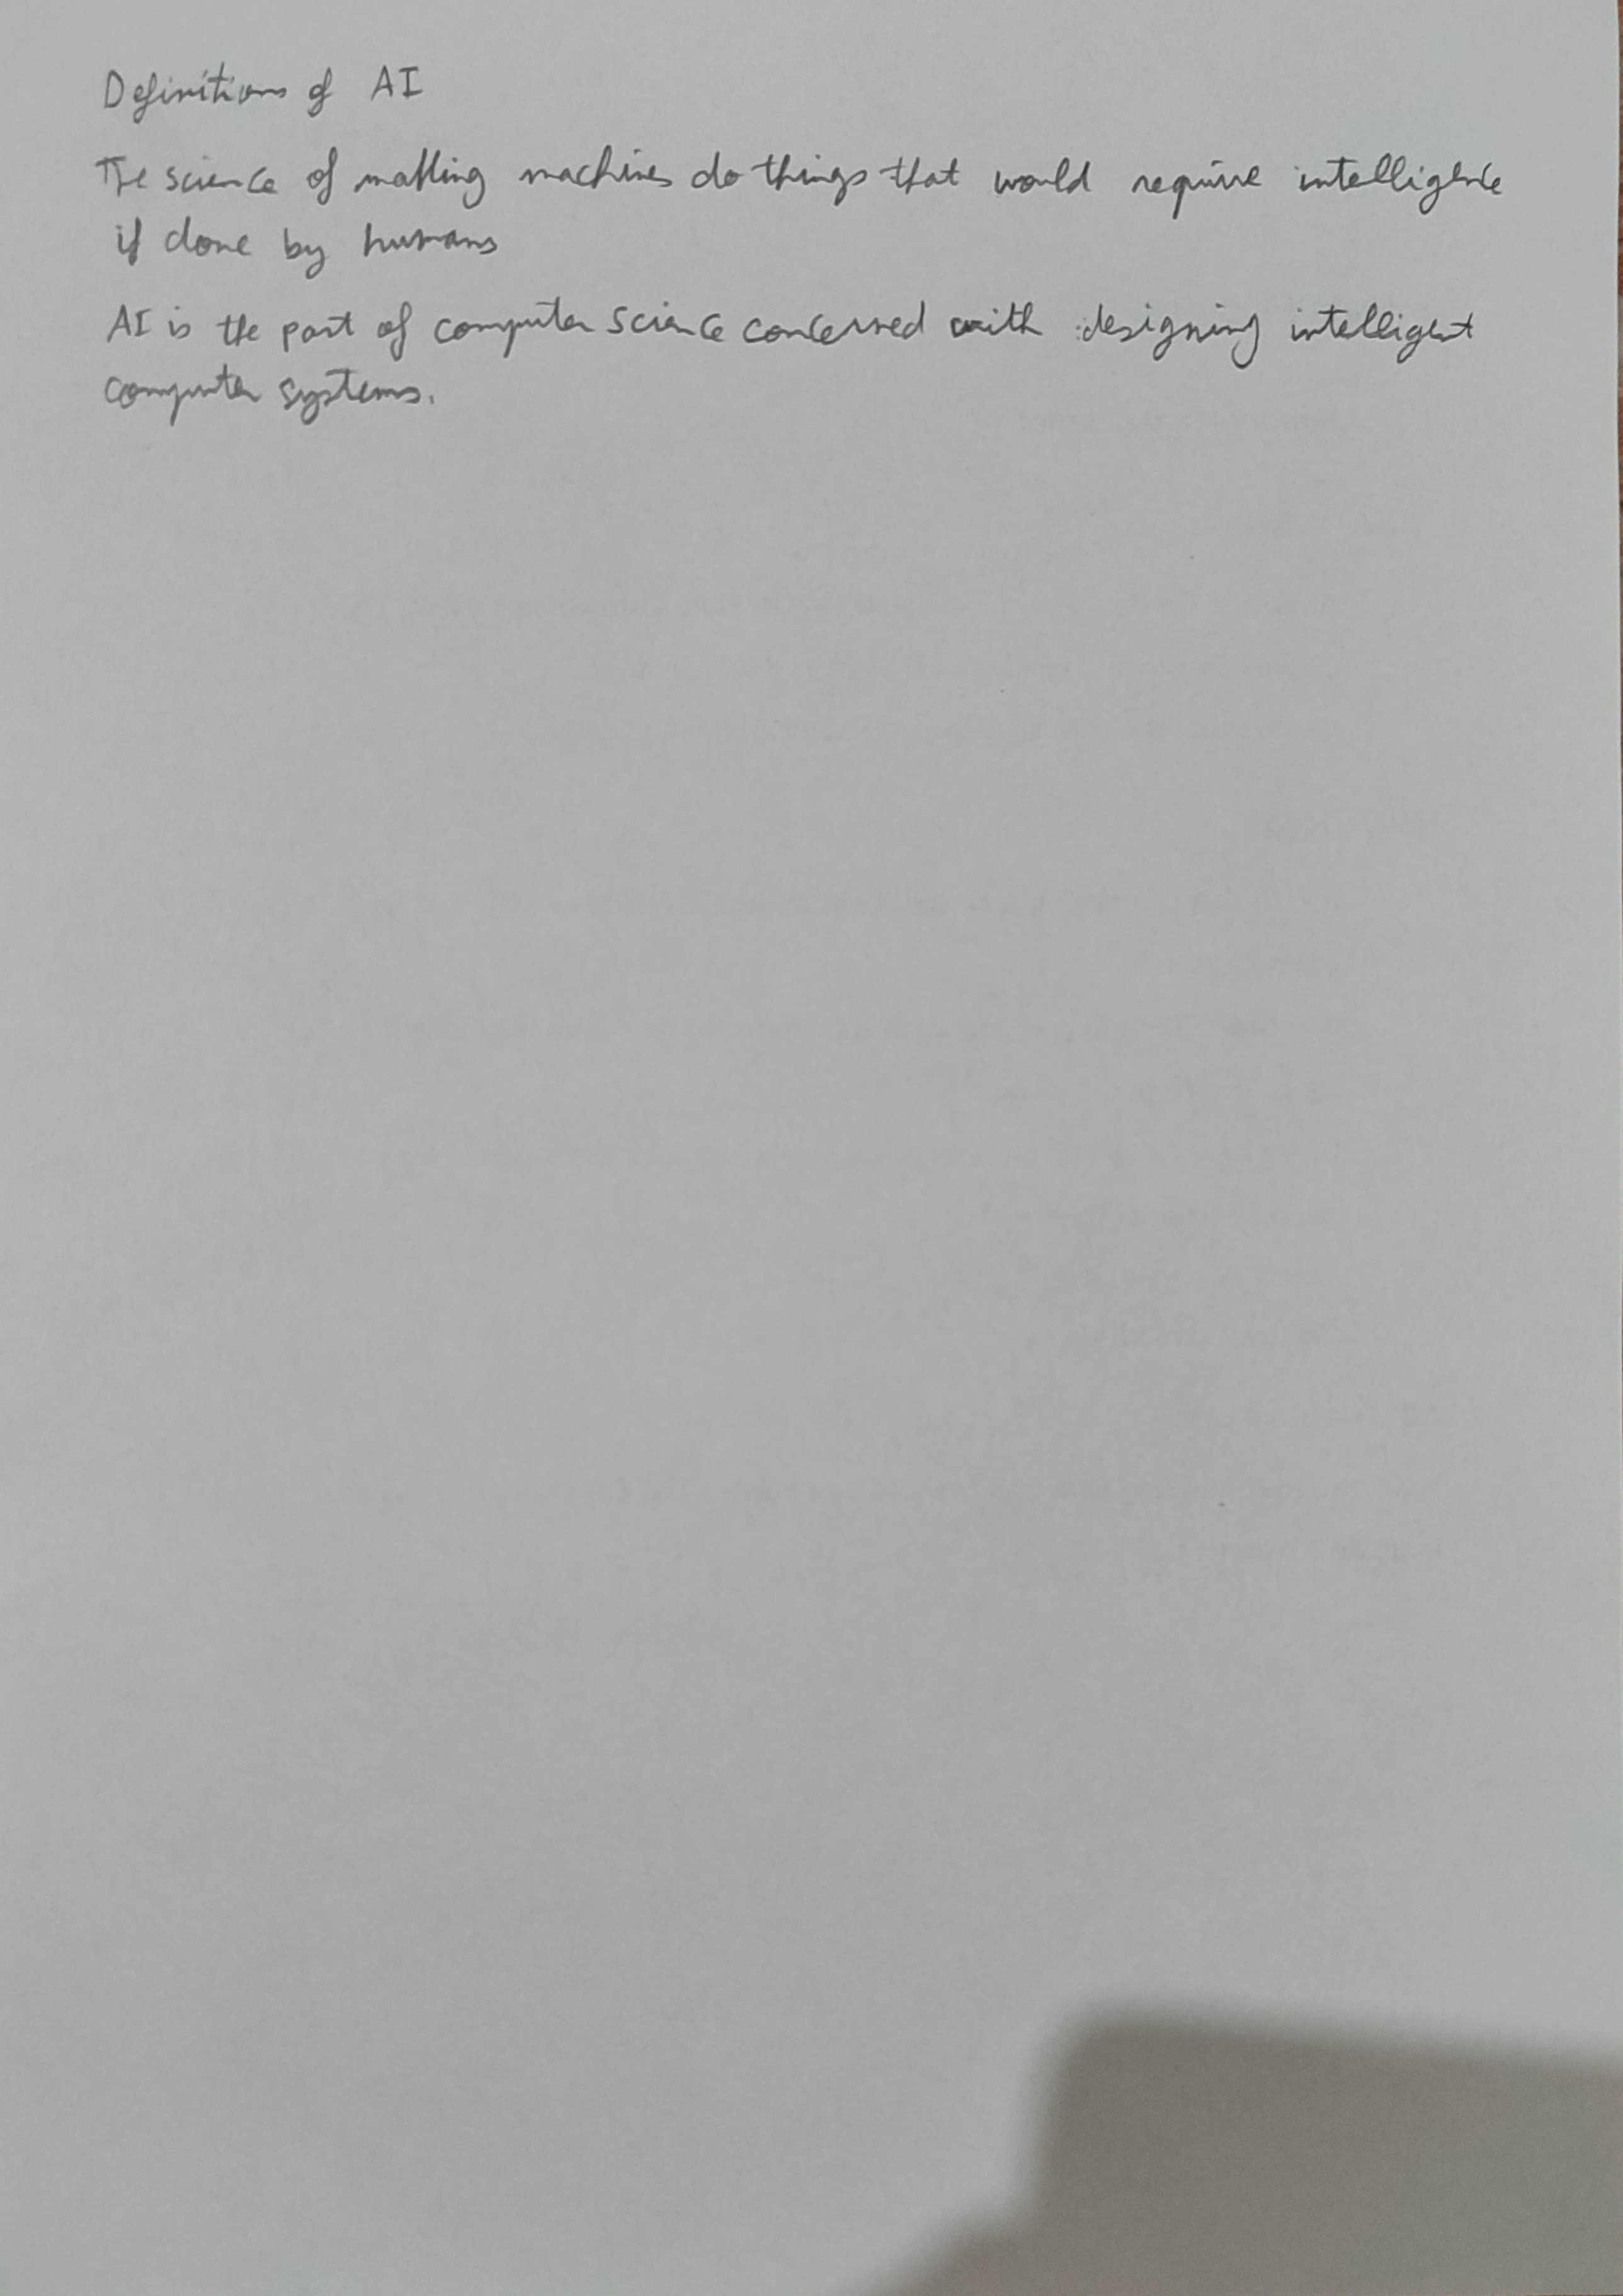 Definitions of AI
The science of making machines do things that would require intelligence
if done by humans
AI is the part of computer science concerned with designing intelligent
computer systems.